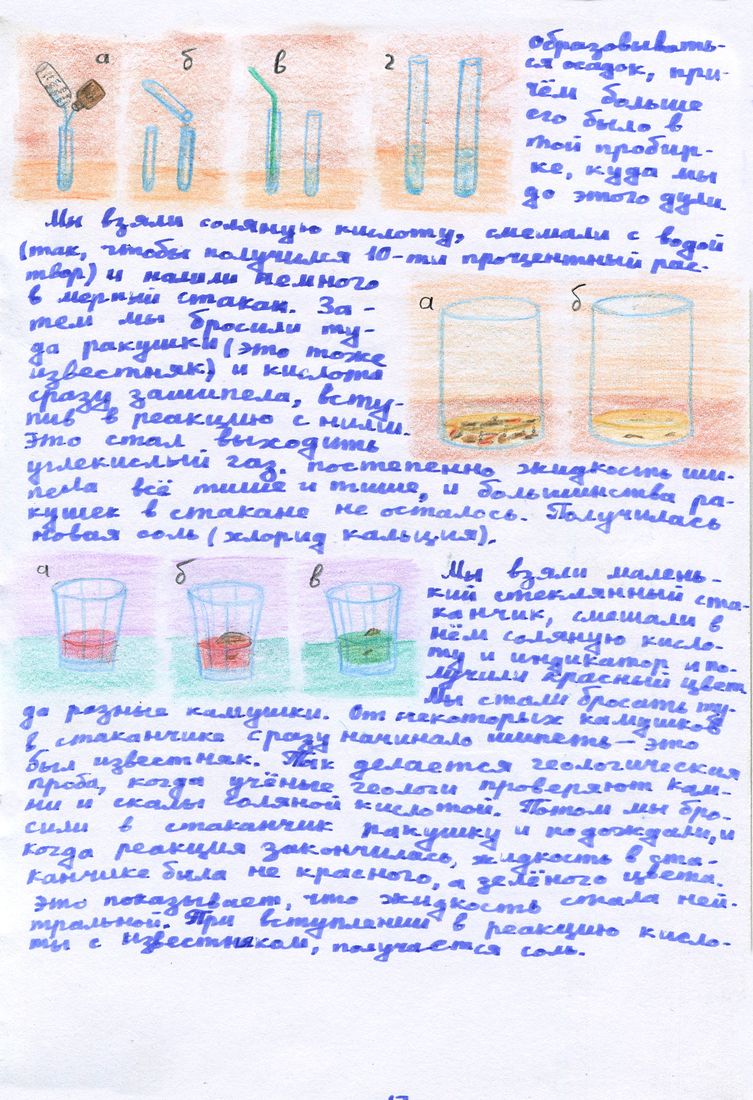 а
б
в
г
образовывать-
ся осадок, при-
чём больше
его было в
той пробир-
ке, куда мы
до этого дули.
Мы взяли соляную кислоту, смешали с водой
(так, чтобы получился 10-ти процентный рас-
твор) и налили немного
в мерный стакан. За-
тем мы бросили ту-
да ракушки (это тоже
известняк) и кислота
сразу зашипела, всту-
пив в реакцию с ними.
Это стал выходить
углекислый газ. постепенно жидкость ши-
пела всё тише и тише, и большинства ра-
кушек в стакане не осталось. Получилась
новая соль (хлорид кальция).
а
б
а
б
в
Мы взяли малень-
кий стеклянный ста-
канчик, смешали в
нём соляную кисло-
ту и индикатор и по-
лучили красный цвет.
Мы стали бросать ту-
да разные камушки. От некоторых камушков
в стаканчике сразу начинало шипеть – это
был известняк. Так делается геологическия
проба, когда учёные геологи проверяют кам-
ни и скалы соляной кислотой. Потом мы бро-
сили в стаканчик ракушку и подождали, и
когда реакция закончилась, жидкость в ста-
канчике была не красного, а зелёного цвета.
Это показывает, что жидкость стала ней-
тральной. При вступлении в реакцию кисло-
ты с известняком, получается соль.